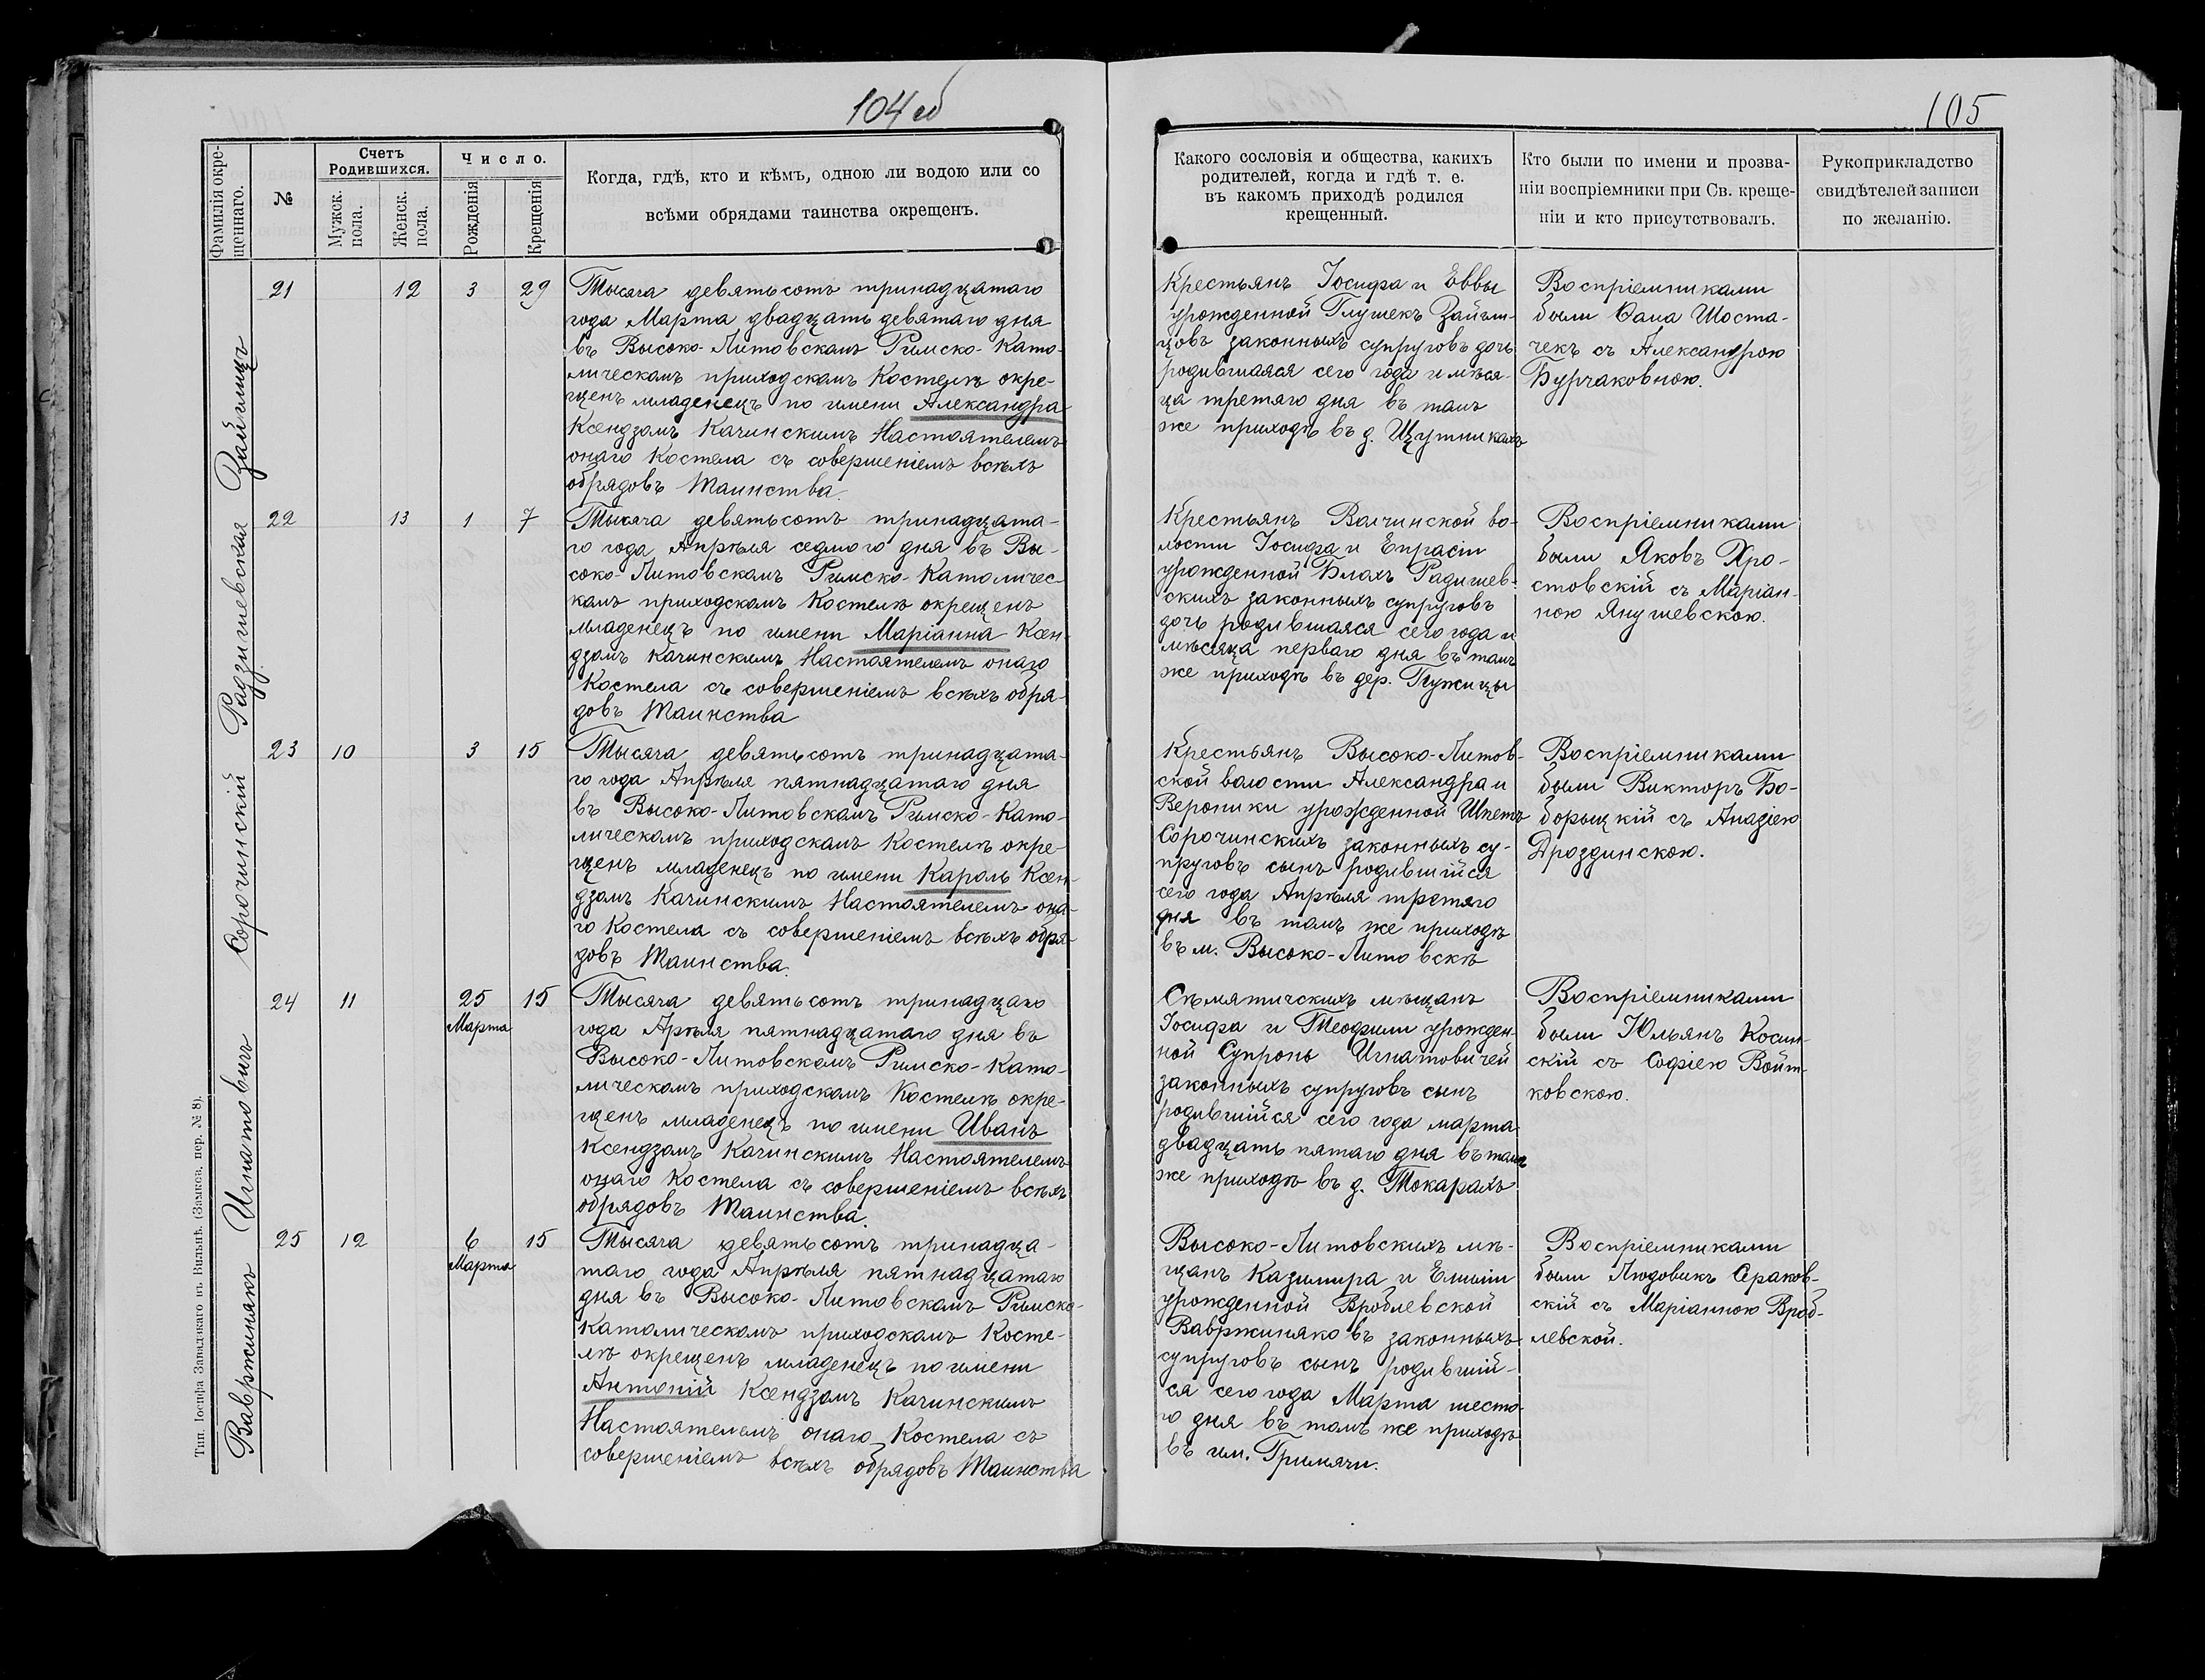 104 об
105
Фамилія окре-
щеннаго.
№
Счетъ
Родившихся.
Мужск.
пола.
Женск.
пола.
Число.
Рожденія
Крещенія
Когда, гдѣ, кто и кѣмъ, одною ли водою или со
всѣми обрядами таинства окрещенъ.
Какого сословія и общества, какихъ
родителей, когда и гдѣ т. е.
въ какомъ приходѣ родился
крещенный.
Кто были по имени и прозва-
ніи воспріемники при Св. креще-
ніи и кто присутствовалъ.
Рукоприкладство
свидѣтелей записи
по желанію.
Зайгмицъ
21
12
3
29
Тысяча девятьсотъ тринадцатаго
года Марта двадцать девятаго дня
въ Высоко-Литовскомъ Римско-Като-
лическомъ приходскомъ Костелѣ окре-
щенъ младенецъ по имени Александра
Ксендзомъ Качинскимъ Настоятелемъ
онаго Костела съ совершеніемъ всѣхъ
обрядовъ Таинства.
Крестьянъ Іосифа и Еввы
урожденной Глушекъ
законныхъ супруговъ дочь
родившаяся сего года и мѣся-
ца третяго дня въ томъ
же приходѣ въ д. Щутникахъ
Воспріемниками
были Ѳома Шоста-
чекъ съ Александрою
Бурчаковною.
Радзишевская
22
13
1
7
Тысяча девятьсотъ тринадцата-
го года Апрѣля седмого дня въ Вы-
соко-Литовскомъ Римско-Католичес-
комъ приходскомъ Костелѣ окрещенъ
младенецъ по имени Маріанна Ксен-
дзомъ Качинскимъ Настоятелемъ онаго
Костела съ совершеніемъ всѣхъ обря-
довъ Таинства
Крестьянъ Волчинской во-
лости Іосифа и Епрасіи
урожденной Блахъ Радишев-
скихъ законныхъ супруговъ
дочь родившаяся сего года и
мѣсяца перваго дня въ томъ
же приходѣ въ дер. Пужицы
Воспріемниками
были Яковъ Хро-
стовскій съ Маріан-
ною Янушевскою.
Сорочинскій
23
10
3
15
Тысяча девятьсотъ тринадцата-
го года Апрѣля пятнадцатаго дня
въ Высоко-Литовскомъ Римско-Като-
лическомъ приходскомъ Костелѣ окре-
щенъ младенецъ по имени Кароль Ксен-
дзомъ Качинскимъ Настоятелемъ она-
го Костела съ совершеніемъ всѣхъ обря-
довъ Таинства.
Крестьянъ Высоко-Литов-
ской волости Александра и
Вероники урожденной Шпетъ
Сорочинскихъ законныхъ су-
пруговъ сынъ родившійся
сего года Апрѣля третяго
дня въ томъ же приходѣ
въ м. Высоко-Литовскѣ
Воспріемниками
были Викторъ Бо-
борыцкій съ Анадіею
Дроздинскою.
Игнатовичъ
24
11
25
Марта
15
Тысяча девятьсотъ тринадцаго
года Арѣля пятнадцатаго дня въ
Высоко-Литовскомъ Римско-Като-
лическомъ приходскомъ Костелѣ окре-
щенъ младенецъ по имени Иванъ
Ксендзомъ Качинскимъ Настоятелемъ
онаго Костела съ совершеніемъ всѣхъ
обрядовъ Таинства.
Сѣмятичскихъ мѣщанъ
Іосифа и Теофили урожден-
ной Супронъ Игнатовичей
законныхъ супруговъ сынъ
родившійся сего года марта
двадцать пятаго дня въ томъ
же приходѣ въ д. Токарахъ
Воспріемниками
были Юльянъ Косин-
скій съ Софіею Войт-
ковскою.
Вавржинякъ
25
12
6
Марта
15
Тысяча девятьсотъ тринадца-
таго года Апрѣля пятнадцатаго
дня въ Высоко-Литовскомъ Римско-
Католическомъ приходскомъ Косте-
лѣ окрещенъ младенецъ по имени
Антоній Ксендзомъ Качинскимъ
Настоятелемъ онаго Костела съ
совершеніемъ всѣхъ обрядовъ Таинства
Высоко-Литовскихъ мѣ-
щанъ Казимира и Емиліи
урожденной Вроблевской
Вавржиняковъ законныхъ
супруговъ сынъ родившій-
ся сего года Марта шесто-
го дня въ томъ же приходѣ
въ им. Гримячи.
Воспріемниками
были Людовикъ Сраков-
скій съ Маріанною Вроб-
левской.
Тип. Іосифа Завадзкаго въ Вильнѣ. (Замков. пер. № 8).